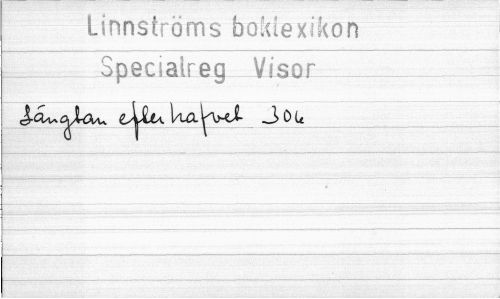 Linnströms boklexikon
Specialreg Visor
Längtan efter hafvet 306